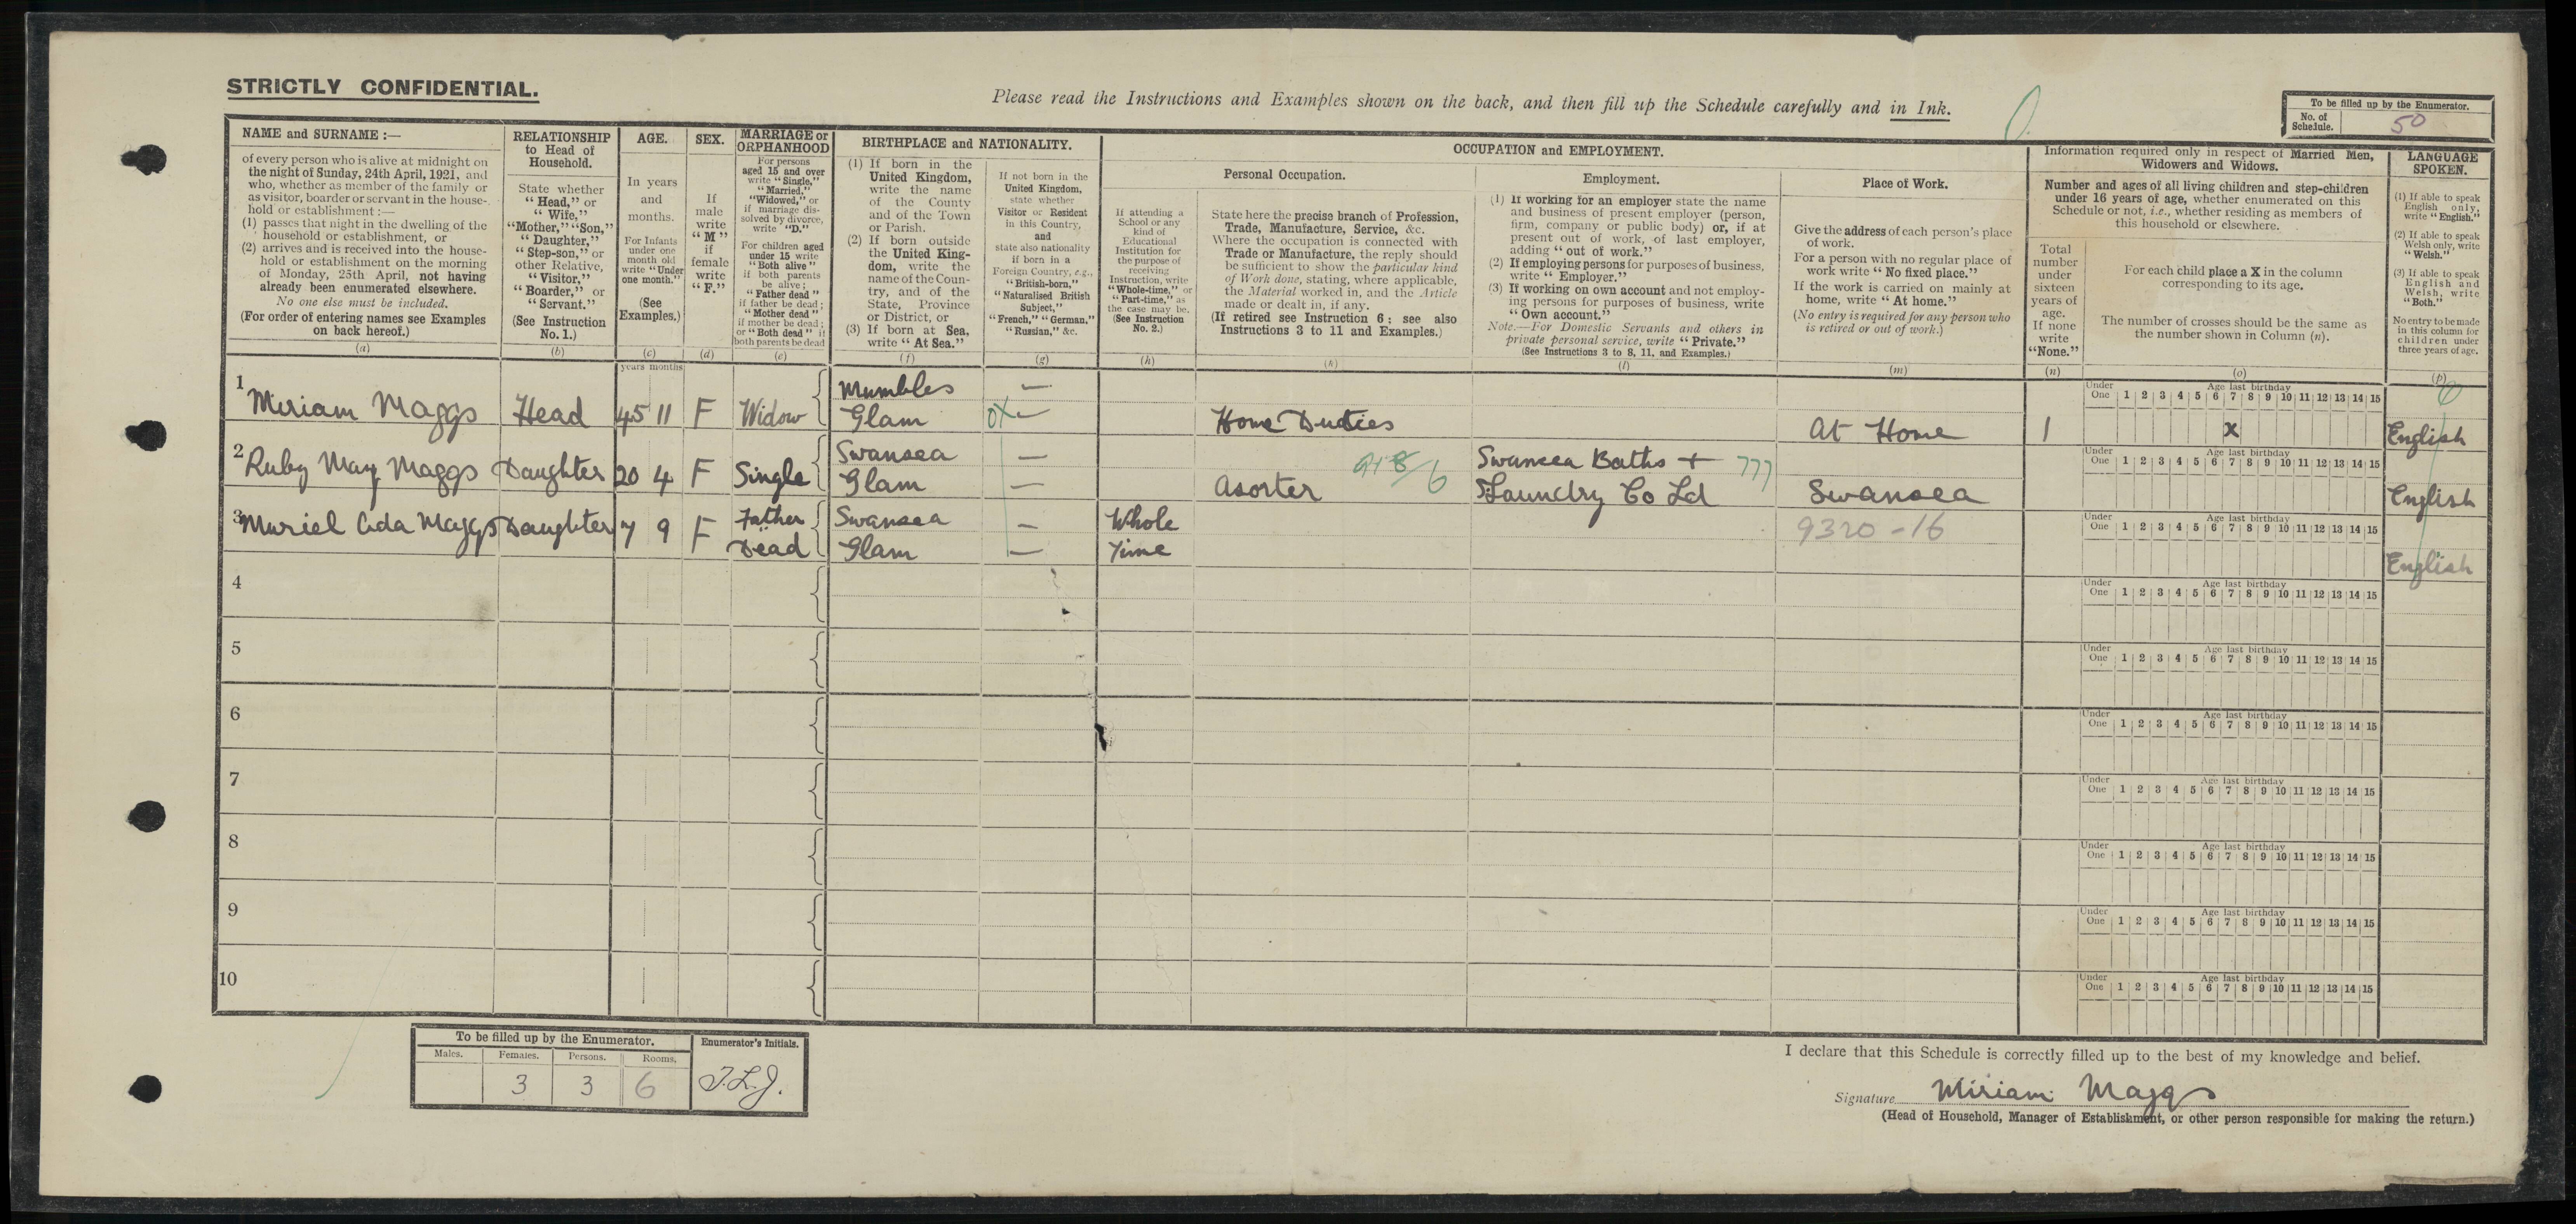 STRICTLY CONFIDENTIAL.
Please read the Instructions and Examples shown on the back, and then fill up the Schedule carefully and in Ink.
To be filled up by the Enumerator.
No. of Schedule. 50
NAME and SURNAME :—
of every person who is alive at midnight on
the night of Sunday, 24th April, 1921, and
who, whether as member of the family or
as visitor, boarder or servant in the house-
hold or establishment :—
(1) passes that night in the dwelling of the
household or establishment, or
(2) arrives and is received into the house-
hold or establishment on the morning
of Monday, 25th April, not having
already been enumerated elsewhere.
No one else must be included.
(For order of entering names see Examples
on back hereof.)
(a)
RELATIONSHIP
to Head of
Household.
State whether
“Head,” or
“Wife,”
“Mother,” “Son,”
“Daughter,”
“Step-son,” or
other Relative,
“Visitor,”
“Boarder,” or
“Servant.”
(See Instruction
No. 1.)
(b)
AGE.
In years
and
months.
For Infants
under one
month old
write “Under
one month.”
(See
Examples.)
(c)
years months
SEX.
If
male
write
“M”
if
female
write
“F.”
(d)
MARRIAGE or
ORPHANHOOD
For persons
aged 15 and over
write “Single,”
“Married,”
“Widowed,” or
if marriage dis-
solved by divorce,
write “D.”
For children aged
under 15 write
“Both alive”
if both parents
be alive ;
“Father dead”
if father be dead ;
“Mother dead”
if mother be dead ;
or “Both dead” if
both parents be dead
(e)
BIRTHPLACE and NATIONALITY.
(1) If born in the
United Kingdom,
write the name
of the County
and of the Town
or Parish.
(2) If born outside
the United King-
dom, write the
name of the Coun-
try, and of the
State, Province
or District, or
(3) If born at Sea,
write “At Sea.”
(f)
If not born in the
United Kingdom,
state whether
Visitor or Resident
in this Country,
and
state also nationality
if born in a
Foreign Country, e.g.,
“British-born,”
“Naturalised British
Subject,”
“French,” “German,”
“Russian,” &c.
(g)
OCCUPATION and EMPLOYMENT.
If attending a
School or any
kind of
Educational
Institution for
the purpose of
receiving
Instruction, write
“Whole-time,” or
“Part-time,” as
the case may be.
(See Instruction
No. 2.)
(h)
Personal Occupation.
State here the precise branch of Profession,
Trade, Manufacture, Service, &c.
Where the occupation is connected with
Trade or Manufacture, the reply should
be sufficient to show the particular kind
of Work done, stating, where applicable,
the Material worked in, and the Article
made or dealt in, if any.
(If retired see Instruction 6 ; see also
Instructions 3 to 11 and Examples.)
(k)
Employment.
(1) If working for an employer state the name
and business of present employer (person,
firm, company or public body) or, if at
present out of work, of last employer,
adding “out of work.”
(2) If employing persons for purposes of business,
write “Employer.”
(3) If working on own account and not employ-
ing persons for purposes of business, write
“Own account.”
Note.—For Domestic Servants and others in
private personal service, write “Private.”
(See Instructions 3 to 8, 11, and Examples.)
(l)
Place of Work.
Give the address of each person's place
of work.
For a person with no regular place of
work write “No fixed place.”
If the work is carried on mainly at
home, write “At home.”
(No entry is required for any person who
is retired or out of work.)
(m)
Information required only in respect of Married Men,
Widowers and Widows.
Number and ages of all living children and step-children
under 16 years of age, whether enumerated on this
Schedule or not, i.e., whether residing as members of
this household or elsewhere.
Total
number
under
sixteen
years of
age.
If none
write
“None.”
(n)
For each child place a X in the column
corresponding to its age.
The number of crosses should be the same as
the number shown in Column (n).
(o)
LANGUAGE
SPOKEN.
(1) If able to speak
English only,
write “English.”
(2) If able to speak
Welsh only, write
“Welsh.”
(3) If able to speak
English and
Welsh, write
“Both.”
No entry to be made
in this column for
children under
three years of age.
(p)
1 Miriam Maggs Head 45 11 F Widow Mumbles Glam — — Home Duties At Home 1 x English
Under One Age last birthday 1 2 3 4 5 6 7 8 9 10 11 12 13 14 15
2 Ruby May Maggs Daughter 20 4 F Single Swansea Glam — — Asorter 918/6 Swansea Baths + Laundry Co Ld 777 Swansea English
Under One Age last birthday 1 2 3 4 5 6 7 8 9 10 11 12 13 14 15
3 Muriel Ada Maggs Daughter 7 9 F Father Dead Swansea Glam — — Whole Time 9320-16 English
Under One Age last birthday 1 2 3 4 5 6 7 8 9 10 11 12 13 14 15
4
Under One Age last birthday 1 2 3 4 5 6 7 8 9 10 11 12 13 14 15
5
Under One Age last birthday 1 2 3 4 5 6 7 8 9 10 11 12 13 14 15
6
Under One Age last birthday 1 2 3 4 5 6 7 8 9 10 11 12 13 14 15
7
Under One Age last birthday 1 2 3 4 5 6 7 8 9 10 11 12 13 14 15
8
Under One Age last birthday 1 2 3 4 5 6 7 8 9 10 11 12 13 14 15
9
Under One Age last birthday 1 2 3 4 5 6 7 8 9 10 11 12 13 14 15
10
Under One Age last birthday 1 2 3 4 5 6 7 8 9 10 11 12 13 14 15
To be filled up by the Enumerator.
Males. Females. Persons. Rooms.
3 3 6
Enumerator's Initials.
T.L.J.
I declare that this Schedule is correctly filled up to the best of my knowledge and belief.
Signature Miriam Maggs
(Head of Household, Manager of Establishment, or other person responsible for making the return.)